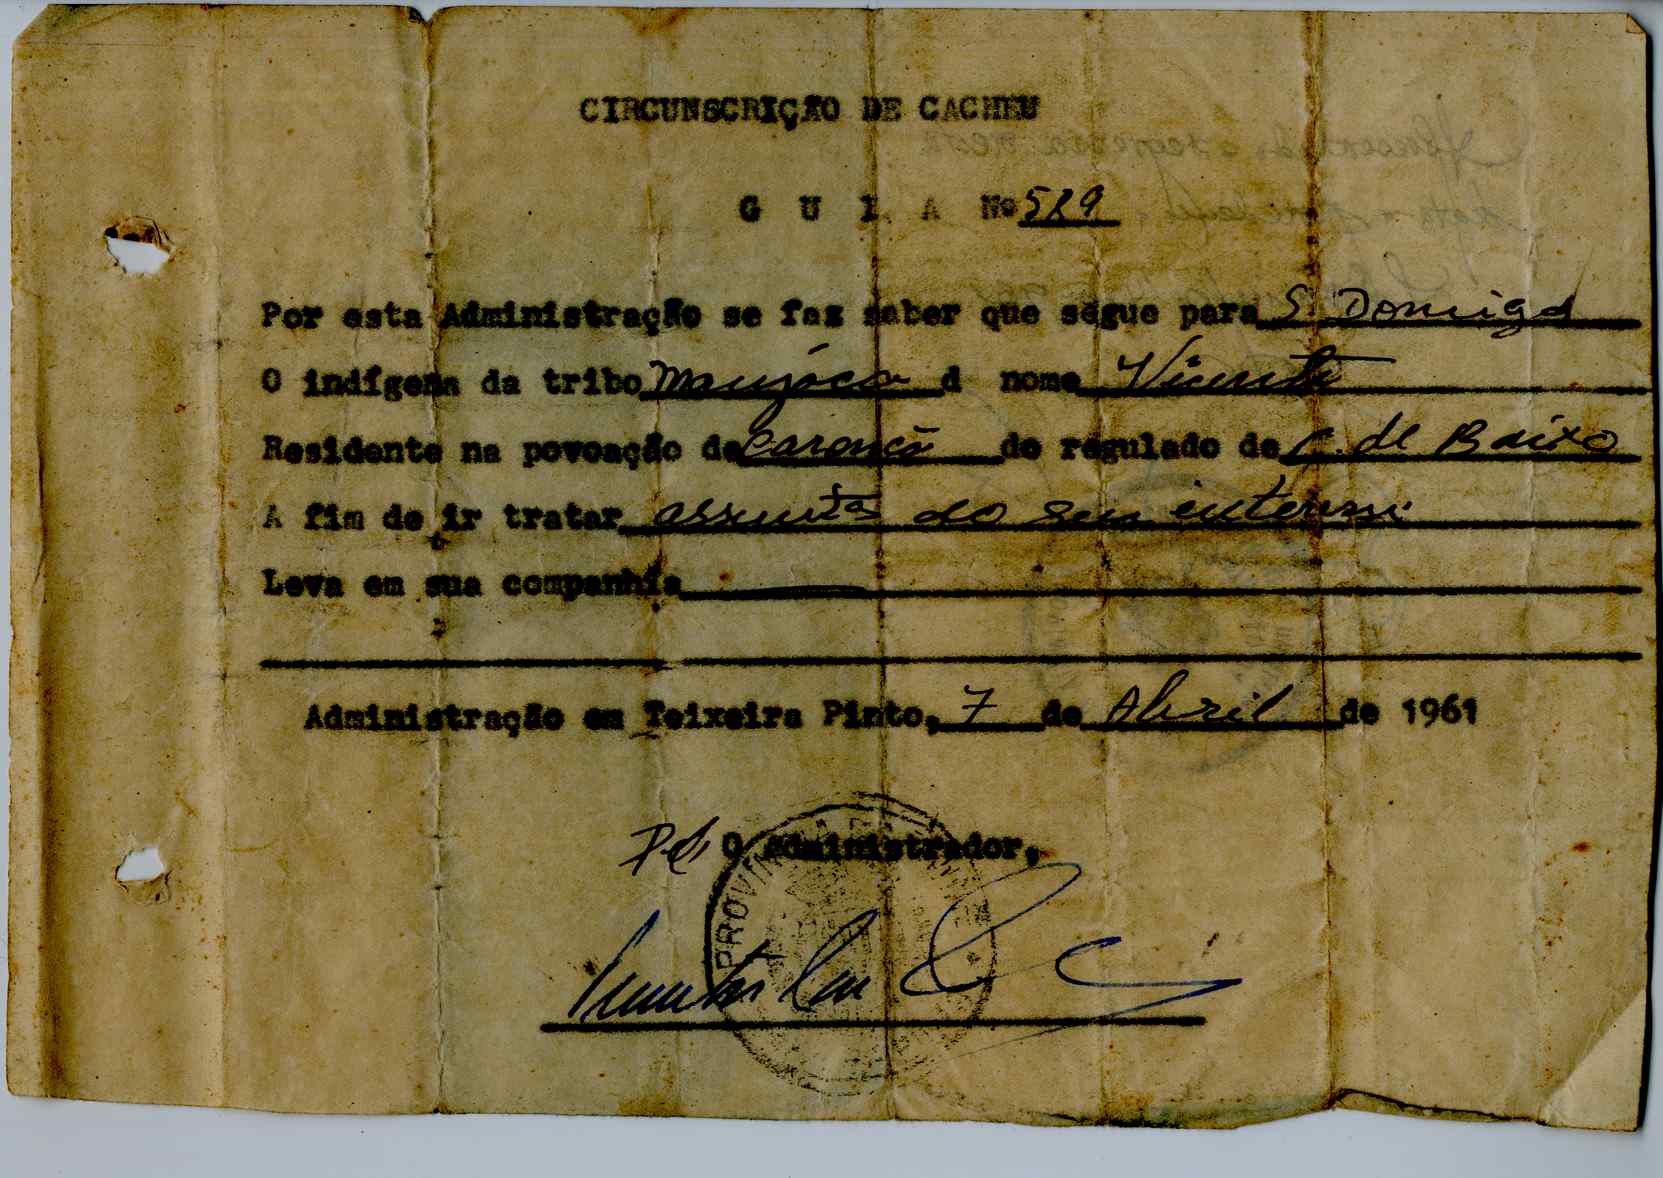 CIRCUNSCRIÇÃO DE CACHEU
G U I A Nº 529
Por esta Administração se faz saber que segue para S. Domingos
O indígena da tribo Manjaca d nome Vicente
Residente na povoação de do regulado de C. de Baixo
A fim de ir tratar assuntos do seu interesse
Leva em sua companhia
Administração em Teixeira Pinto, 7 de Abril de 1961
O Administrador,
PROVÍNCIA